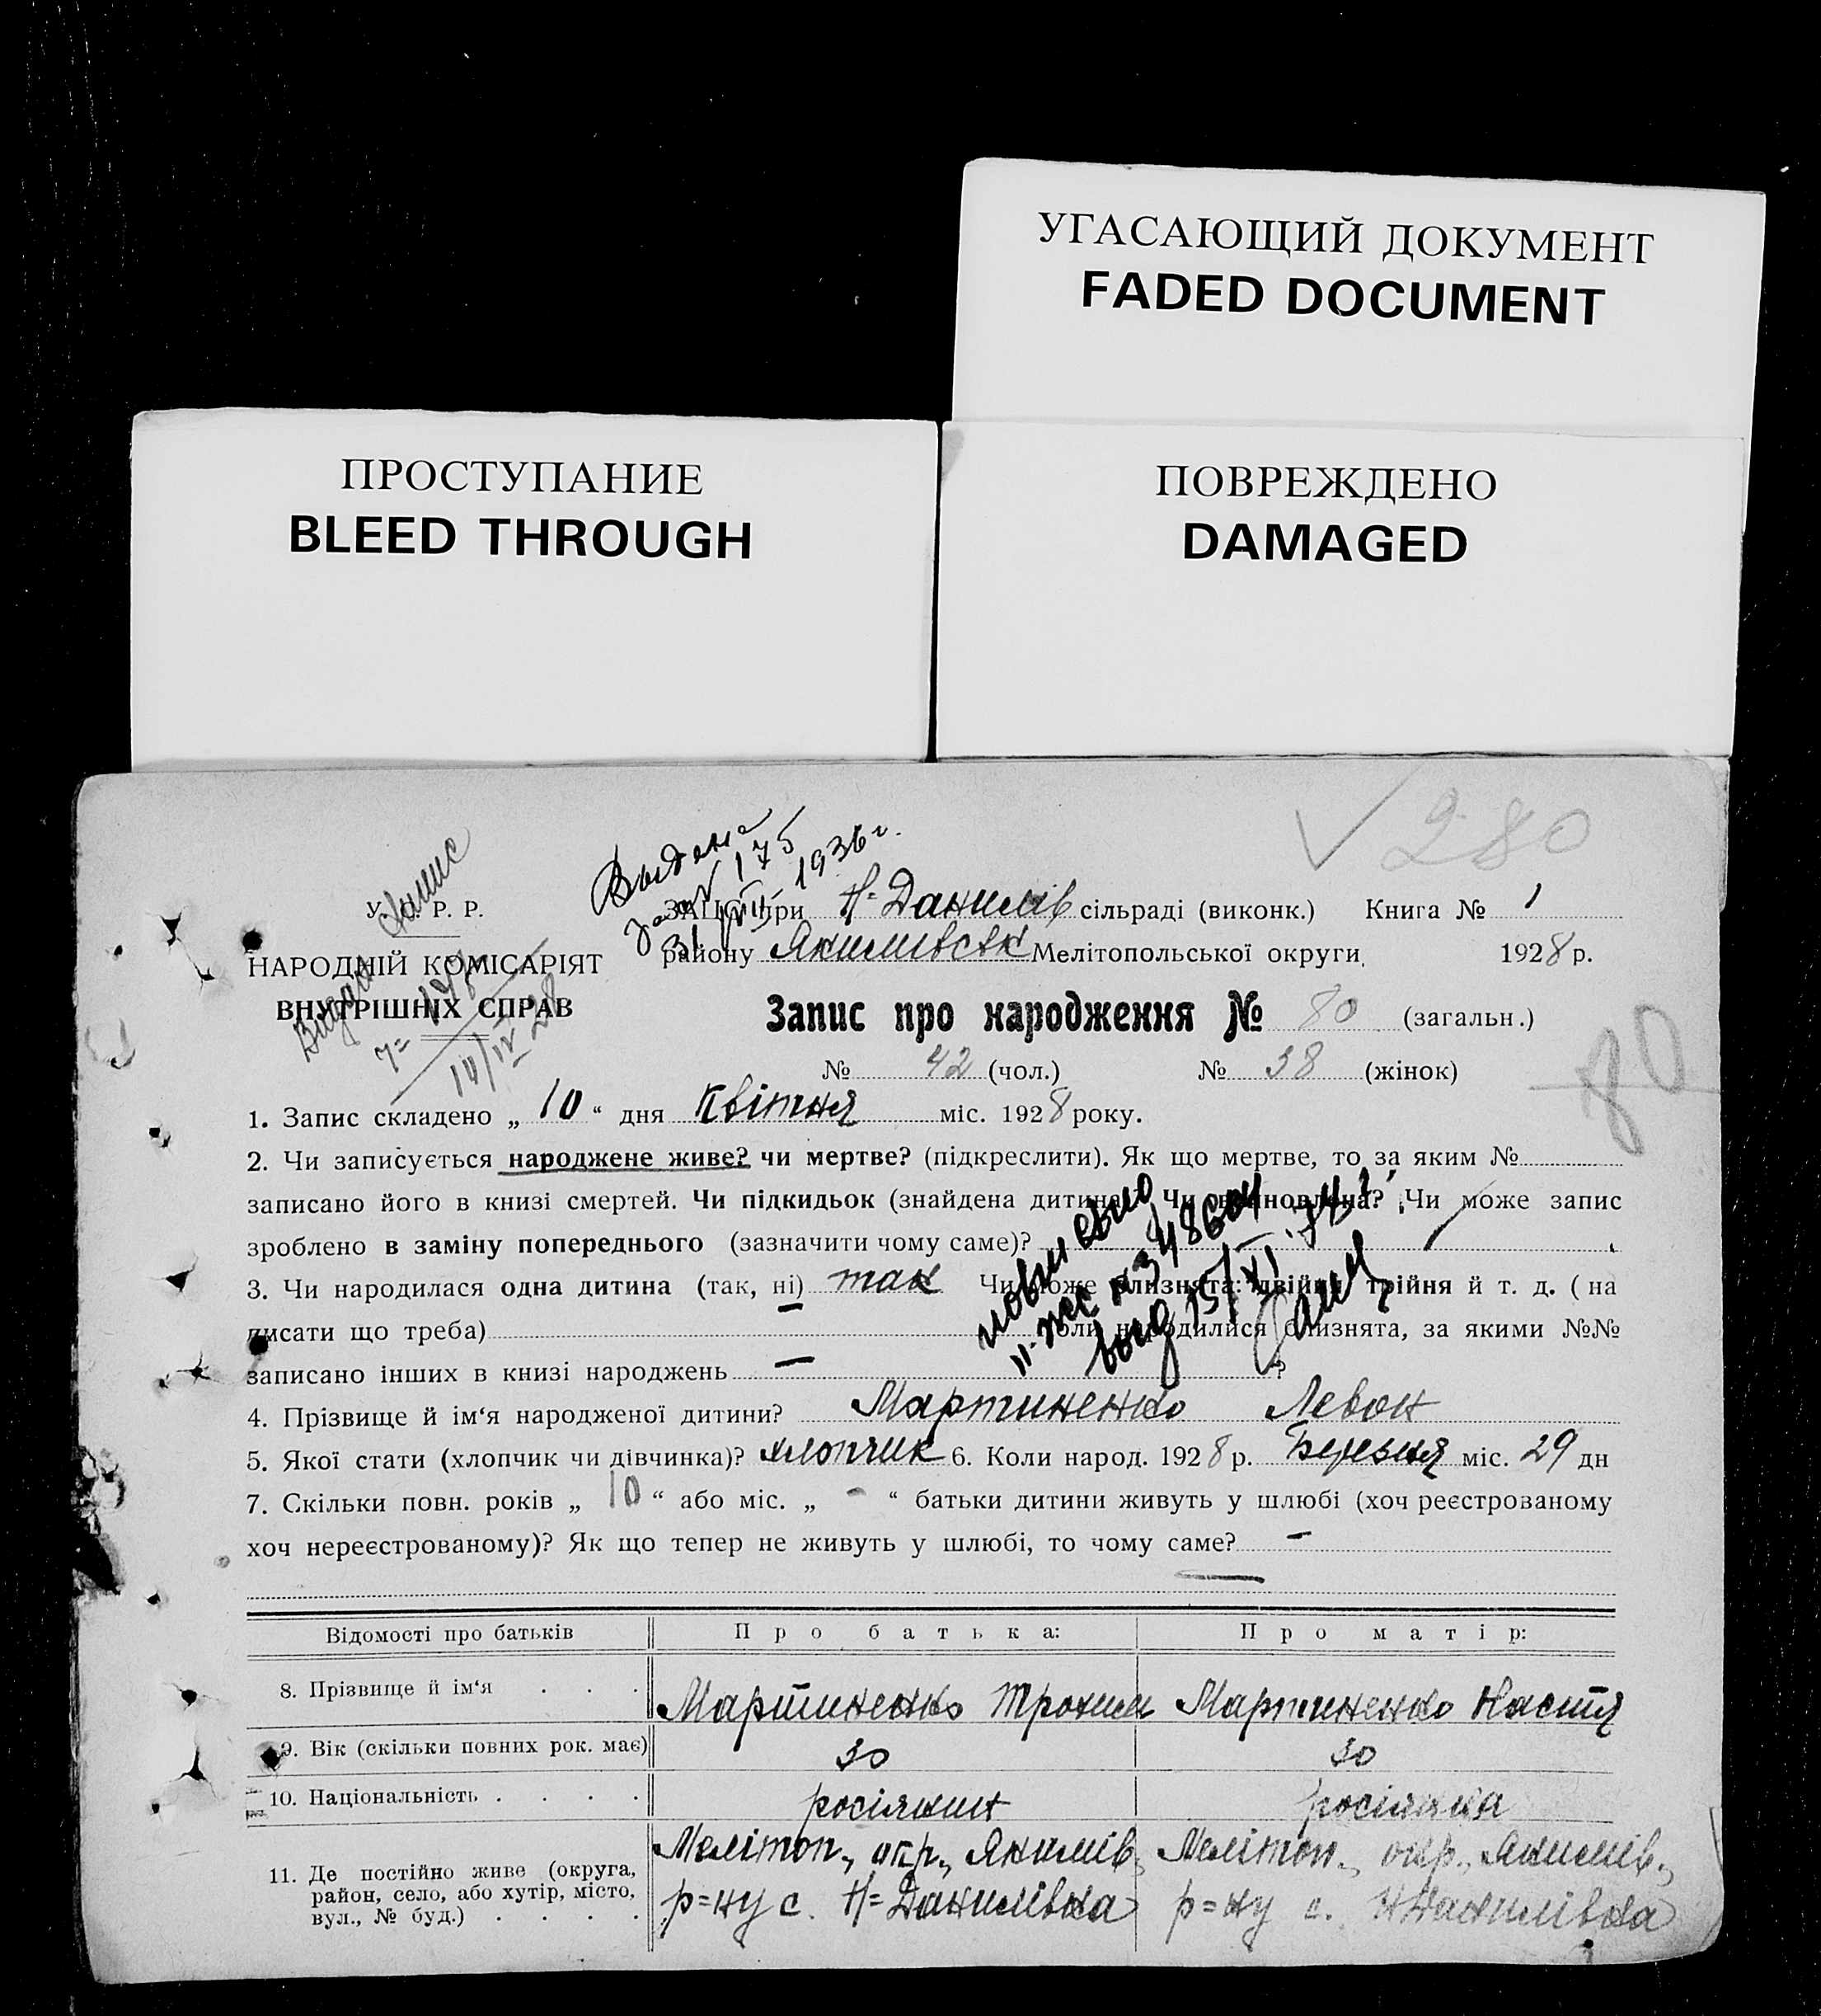 УГАСАЮЩИЙ ДОКУМЕНТ
FADED DOCUMENT
ПРОСТУПАНИЕ
BLEED THROUGH
ПОВРЕЖДЕНО
DAMAGED
280
У. Р. Р.
НАРОДНІЙ КОМІСАРІЯТ
ВНУТРІШНІХ СПРАВ
175
1936 г.
ЗАЦС при Н=Данилів сільраді (виконк.) Книга № 1
району Якимівськ Мелітопольської округи 1928 р.
Запис про народження № 80 (загальн.)
80
№ 42 (чол.) № 38 (жінок)
1. Запис складено „ 10 “ дня Квітня міс. 1928 року.
2. Чи записується народжене живе? чи мертве? (підкреслити). Як що мертве, то за яким №
записано його в книзі смертей. Чи підкидьок (знайдена дитина) Чи Чи може запис
зроблено в заміну попереднього (зазначити чому саме)?
3. Чи народилася одна дитина (так, ні) так Чи може близнята: двійня, трійня й т. д. (на
писати що треба) Коли народилися близнята, за якими №№
записано інших в книзі народжень — ?
4. Прізвище й ім‘я народженої дитини? Мартиненко Левон
5. Якої стати (хлопчик чи дівчинка)? хлопчик 6. Коли народ. 1928 р. Березня міс. 29 дн
7. Скільки повн. років „ 10 “ або міс. „ - “ батьки дитини живуть у шлюбі (хоч реєстрованому
хоч нереєстрованому)? Як що тепер не живуть у шлюбі, то чому саме? —
Відомості про батьків Про батька: Про матір:
8. Прізвище й ім‘я . . . Мартиненко Трохим Мартиненко Настя
9. Вік (скільки повних рок. має) 30 30
10. Національність . . . . росіянин росіянка
11. Де постійно живе (округа, район, село, або хутір, місто, вул., № буд.) . . . .
Мелітоп., окр., Якимів, Мелітоп., окр., Якимів.,
р=ну с. Н=Данилівка р=ну с. Н Данилівка